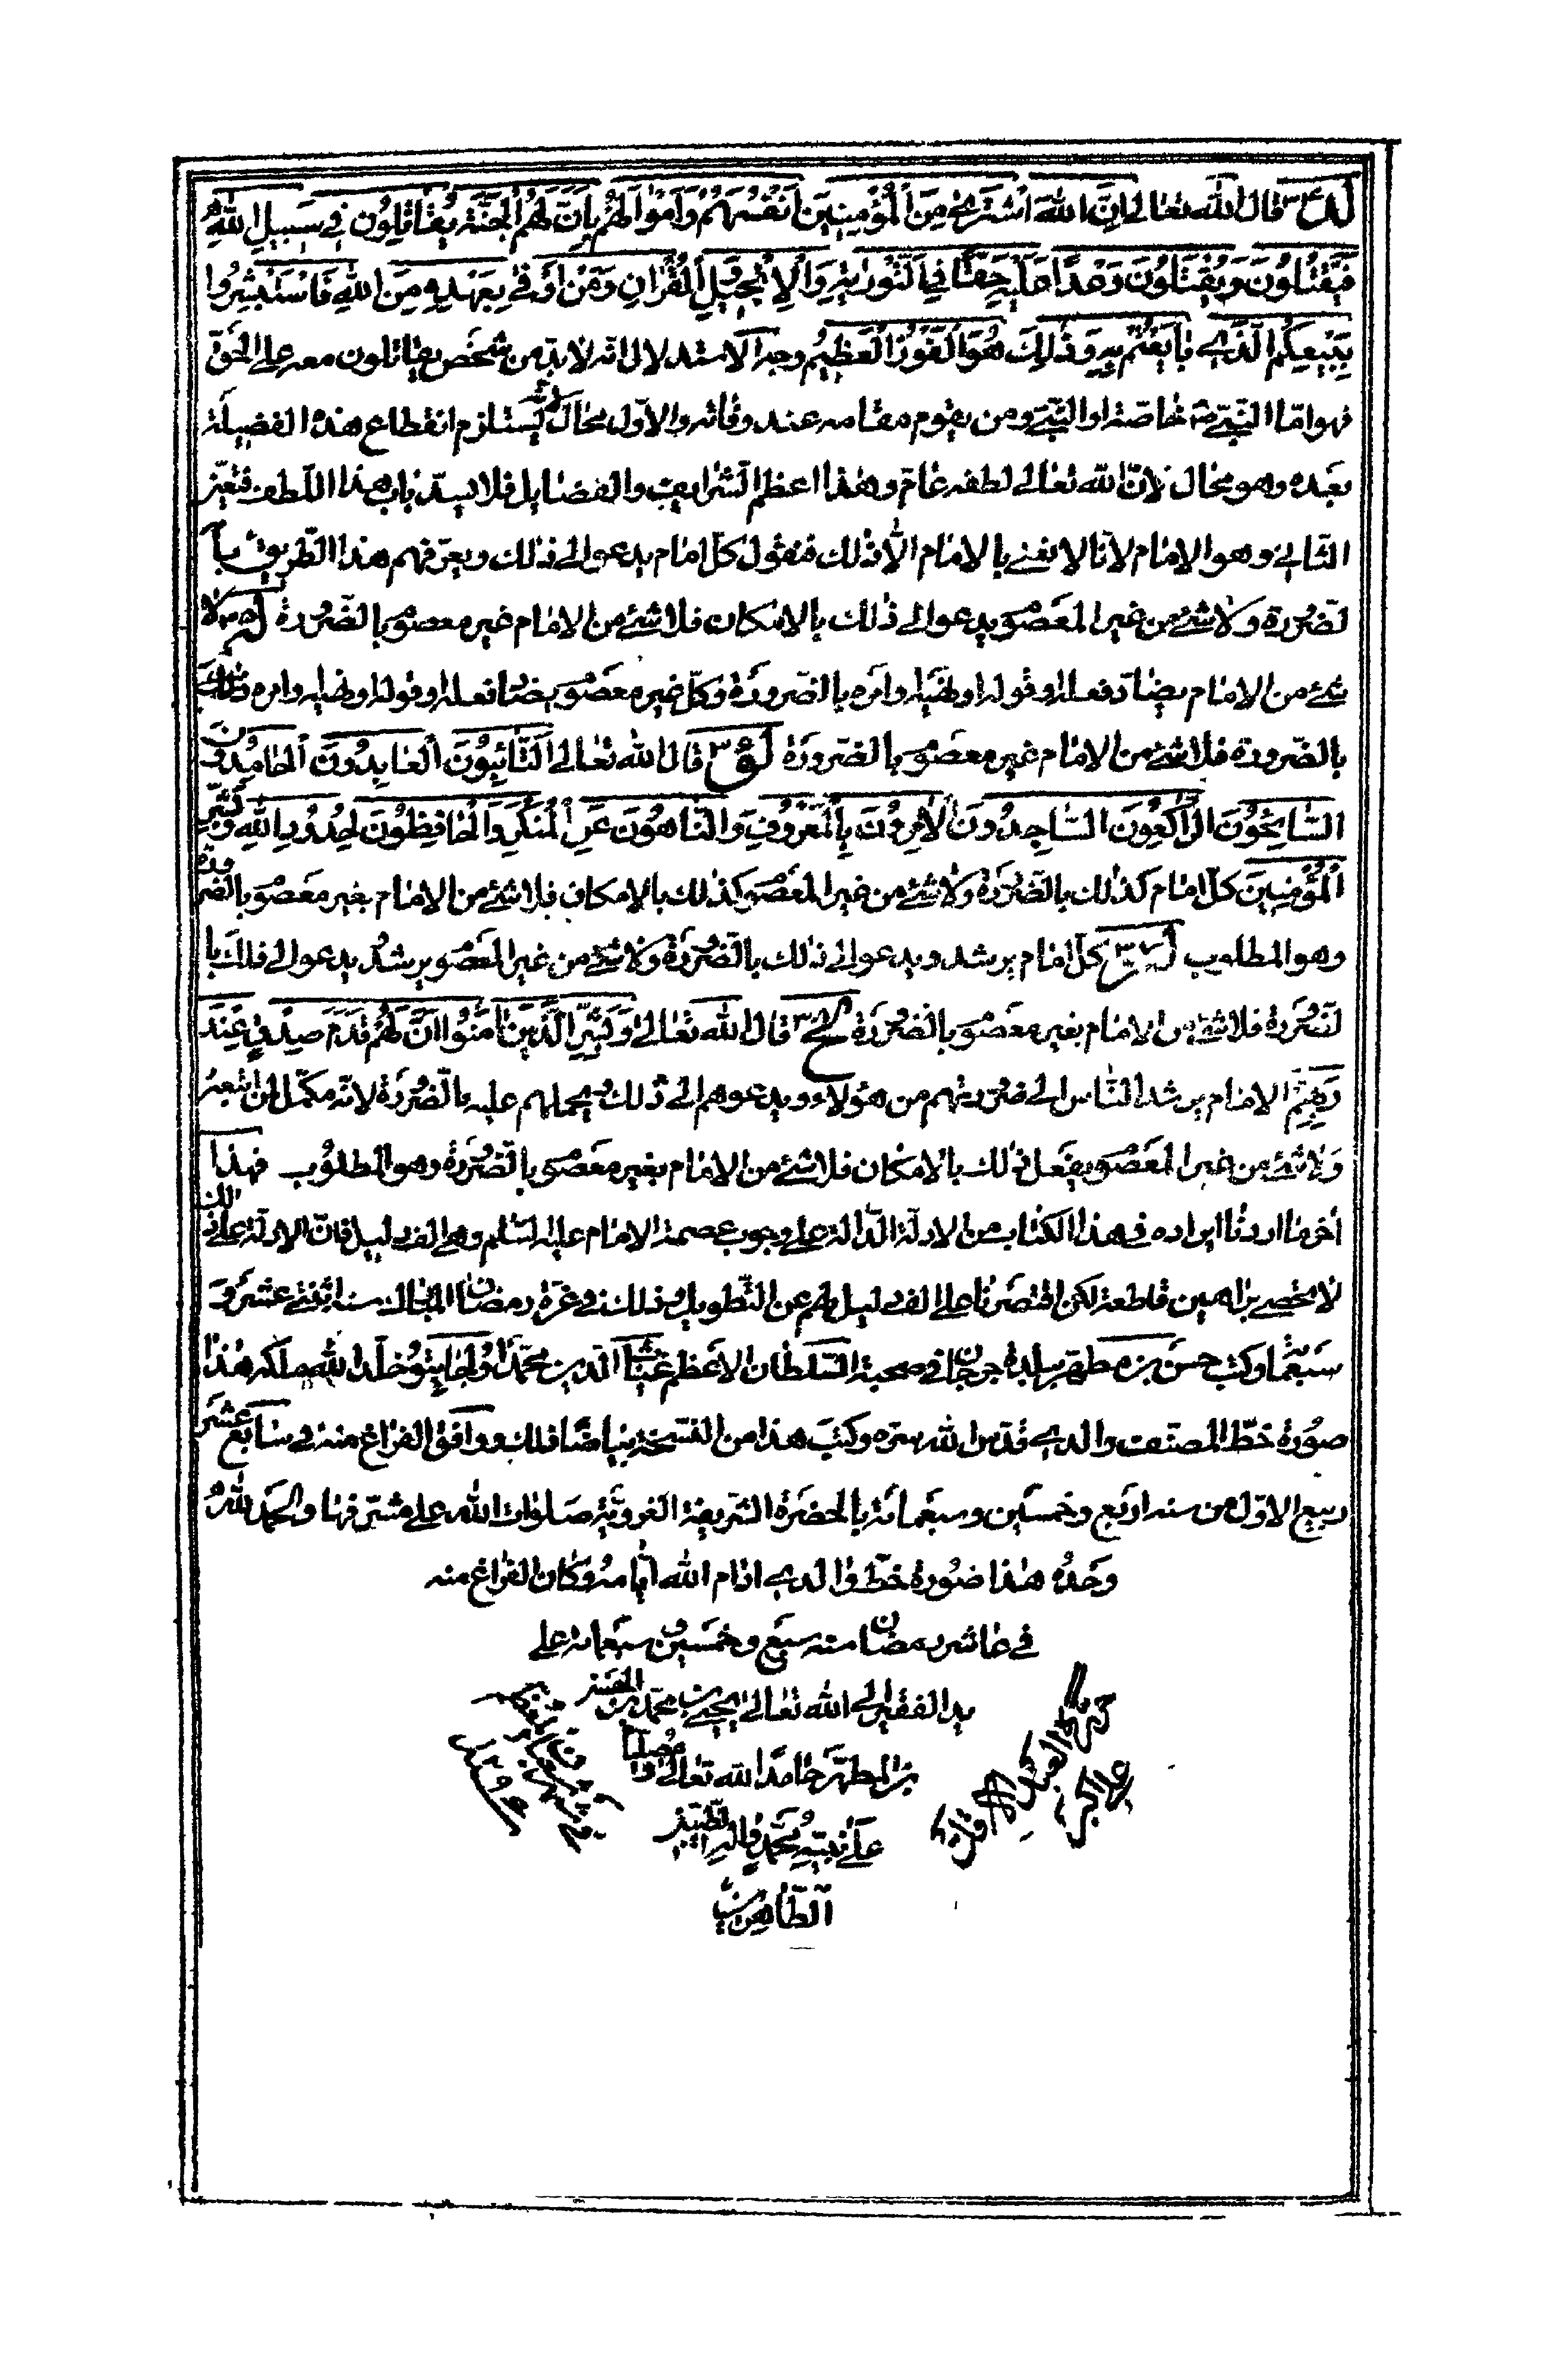 قال الله تعالى إِنَّ اللَّهَ اشْتَرَىٰ مِنَ الْمُؤْمِنِينَ أَنْفُسَهُمْ وَأَمْوَالَهُمْ بِأَنَّ لَهُمُ الْجَنَّةَ يُقَاتِلُونَ فِي سَبِيلِ اللَّهِ
فَيَقْتُلُونَ وَيُقْتَلُونَ وَعْدًا عَلَيْهِ حَقًّا فِي التَّوْرَاةِ وَالْإِنْجِيلِ وَالْقُرْآنِ وَمَنْ أَوْفَىٰ بِعَهْدِهِ مِنَ اللَّهِ فَاسْتَبْشِرُوا
بِبَيْعِكُمُ الَّذِي بَايَعْتُمْ بِهِ وَذَٰلِكَ هُوَ الْفَوْزُ الْعَظِيمُ وجه الاستدلال انه لابد من شخص يقاتلون معه على الحق
فهو اما النبي ص خاصة او النبي ومن يقوم مقامه عند وفاته والاول محال لاستلزام انقطاع هذه الفضيلة
بعده وهو محال لان الله تعالى لطفه عام وهذا اعظم الشرايف والفضايل فلا يسد باب هذا اللطف فتعين
الثاني وهو الامام لانا لا نعني بالامام الا ذلك فنقول كل امام يدعو الى ذلك ويعرفهم هذا الطريق با
لضرورة ولا شئ من غير المعصوم يدعو الى ذلك بالامكان فلا شئ من الامام غير معصوم بالضرورة لا
شئ من الامام يضاد فعله او قوله او نهيه وامره بالضرورة وكل غير معصوم يضاد فعله او قوله او نهيه وامره ذلك
بالضرورة فلا شئ من الامام غير معصوم بالضرورة قال الله تعالى التَّائِبُونَ الْعَابِدُونَ الْحَامِدُونَ
السَّائِحُونَ الرَّاكِعُونَ السَّاجِدُونَ الْآمِرُونَ بِالْمَعْرُوفِ وَالنَّاهُونَ عَنِ الْمُنْكَرِ وَالْحَافِظُونَ لِحُدُودِ اللَّهِ وَبَشِّرِ
الْمُؤْمِنِينَ كل امام كذلك بالضرورة ولا شئ من غير المعصوم كذلك بالامكان فلا شئ من الامام بغير معصوم بالضرورة
وهو المطلوب كل امام يرشد ويدعو الى ذلك بالضرورة ولا شئ من غير المعصوم يرشد يدعو الى ذلك با
لضرورة فلا شئ من الامام بغير معصوم بالضرورة قال الله تعالى وَبَشِّرِ الَّذِينَ آمَنُوا أَنَّ لَهُمْ قَدَمَ صِدْقٍ عِنْدَ
رَبِّهِمْ الامام يرشد الناس الى من هؤلاء ويدعوهم الى ذلك ويحملهم عليه بالضرورة لانه مكمل لمن اتبعه
ولا شئ من غير المعصوم يفعل ذلك بالامكان فلا شئ من الامام بغير معصوم بالضرورة وهو المطلوب فهذا
آخر ما اردنا ايراده في هذا الكتاب من الادلة الدالة على وجوب عصمة الامام عليه السلام وهي الف دليل فان الادلة على ذلك
لا تحصى براهين قاطعة لكن اقتصرنا على الف دليل لهم عن التطويل وذلك في غرة رمضان المبارك سنة اثنتي عشر و
سبعمائة وكتب حسن بن مطهر ببلدة جرجان في صحبة السلطان الاعظم غياث الدين محمد اولجايتو خلد الله ملكه هذا
صورة خط المصنف والدي قدس الله سره وكتب هذا من النسخة بياضا ذلك ووافق الفراغ منه في سابع عشر
ربيع الاول من سنة اربع وخمسين وسبعمائة بالحضرة الشريفة الغروية صلوات الله على مشرفها والحمد لله
وحده هذا صورة خط والدي ادام الله ايامه وكان الفراغ منه
في عاشر رمضان سنة سبع وخمسين وسبعمائة على
يد الفقير الى الله تعالى يحيى بن محمد بن الحسن
بن المطهر حامدا لله تعالى ومصليا
على نبيه محمد وآله الطيبين
الطاهرين